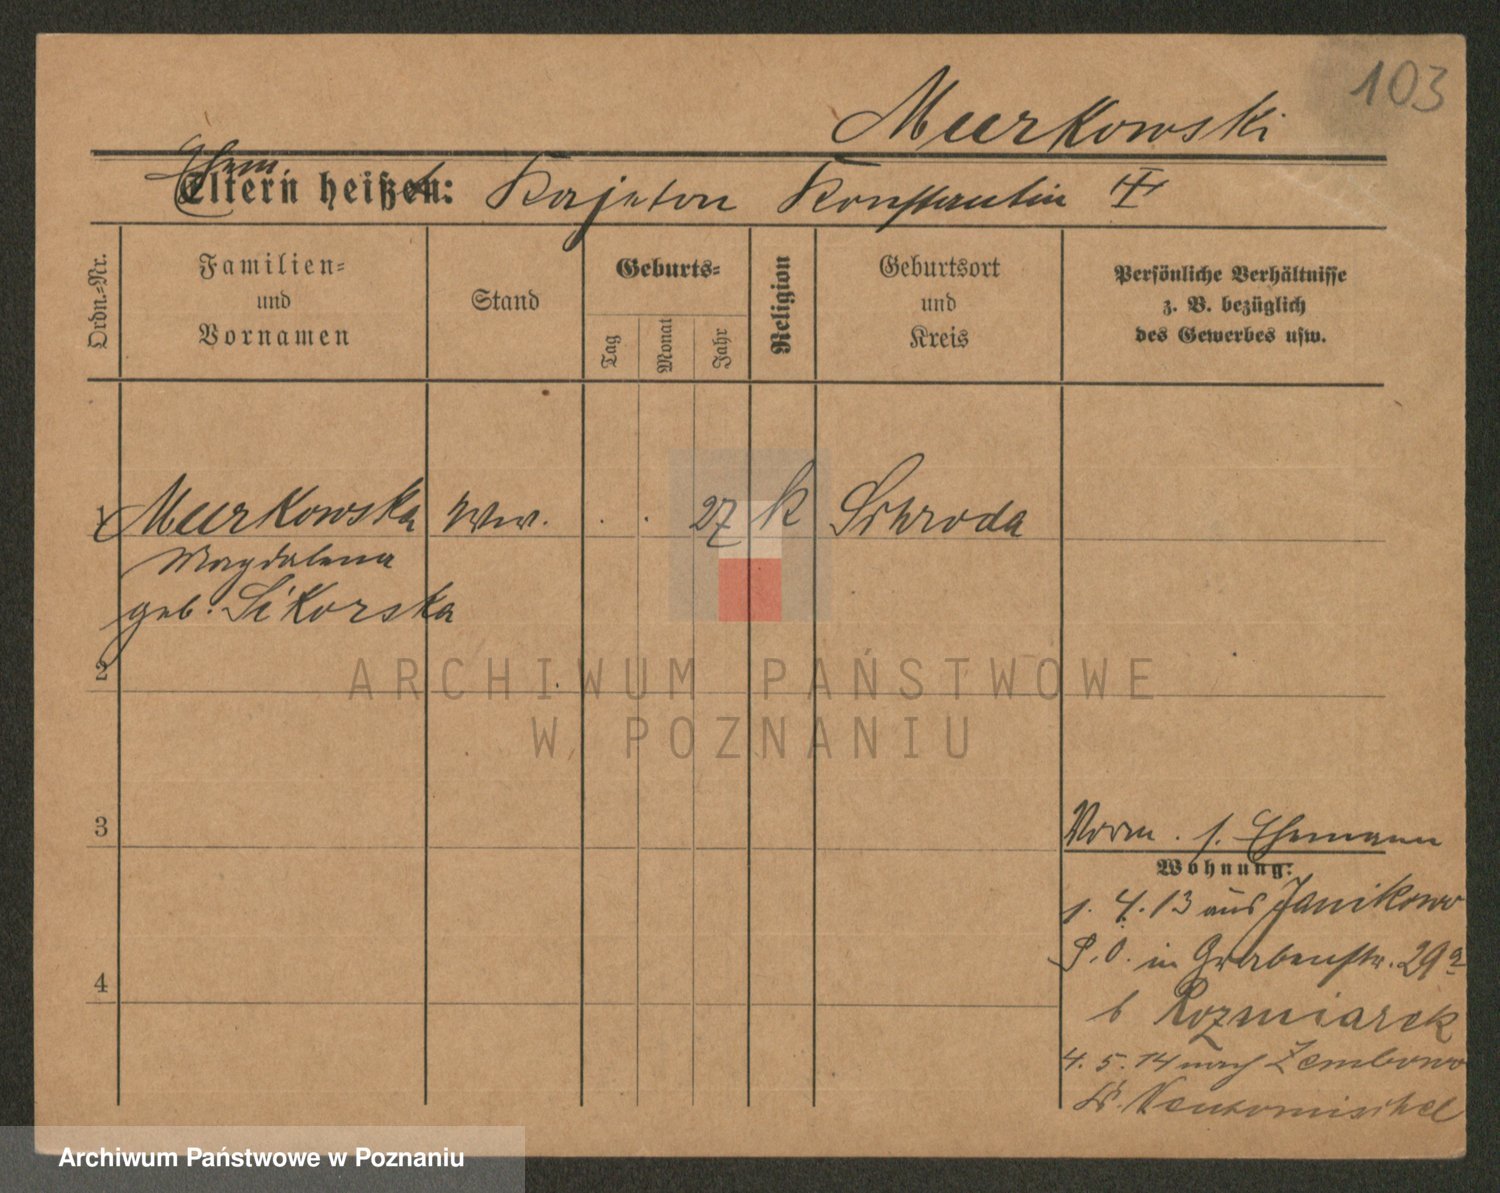 103
Murkowski
Ehem.
Eltern heißen: Kajetan Konstantin
Ordn.-Nr.
Familien-
und
Vornamen
Stand
Geburts-
Tag
Monat
Jahr
Religion
Geburtsort
und
Kreis
Persönliche Verhältnisse
z. B. bezüglich
des Gewerbes usw.
1 Murkowska Ww. . . 27 k Schroda
Magdalena
geb. Sikorska
2
ARCHIWUM PAŃSTWOWE
W POZNANIU
3
Vorm. s. Ehemann
Wohnung:
1.4.13 aus Janikowo
P.O. in Grabenstr. 29a
b Rozmiarek
4
4.5.14 nach Zembowo
Kr. Neutomischel
Archiwum Państwowe w Poznaniu